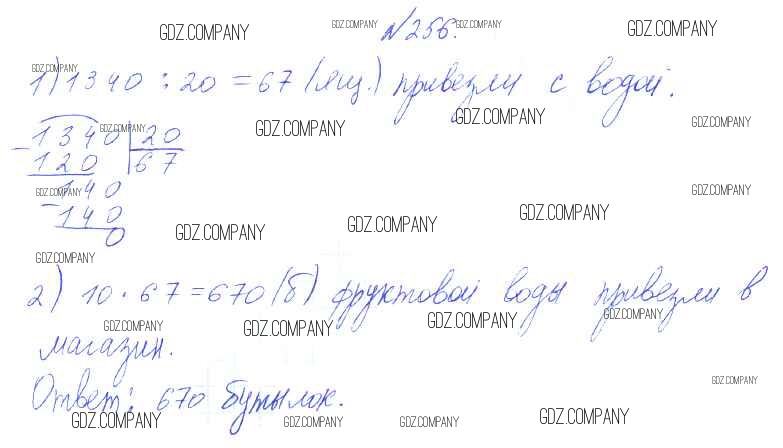 №256.
1) 1340 : 20 = 67 (ящ.) привезли с водой.
1340 | 20
120 | 67
140
140
0
2) 10 · 67 = 670 (б) фруктовой воды привезли в
магазин.
Ответ: 670 бутылок.
GDZ.COMPANY GDZ.COMPANY GDZ.COMPANY GDZ.COMPANY
GDZ.COMPANY
GDZ.COMPANY GDZ.COMPANY GDZ.COMPANY GDZ.COMPANY
GDZ.COMPANY GDZ.COMPANY
GDZ.COMPANY GDZ.COMPANY GDZ.COMPANY
GDZ.COMPANY
GDZ.COMPANY GDZ.COMPANY GDZ.COMPANY GDZ.COMPANY
GDZ.COMPANY
GDZ.COMPANY GDZ.COMPANY GDZ.COMPANY GDZ.COMPANY